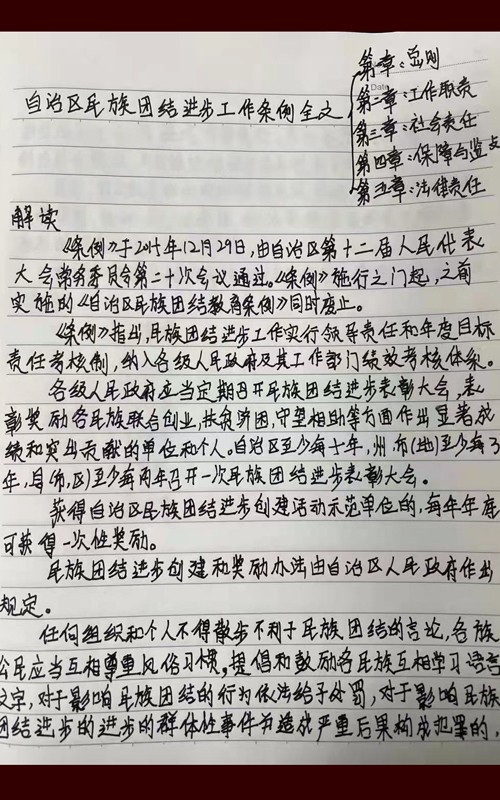 自治区民族团结进步工作条例全文
第一章:总则
第二章:工作职责
第三章:社会责任
第四章:保障与监
第五章:法律责任
解读
《条例》于2015年12月29日,由自治区第十二届人民代表
大会常务委员会第二十次会议通过。《条例》施行之 起,之前
实施的《自治区民族团结教育条例》同时废止。
《条例》指出,民族团结进步工作实行领导责任和年度目标
责任考核制,纳入各级人民政府及其工作部门绩效考核体系。
各级人民政府应当定期召开民族团结进步表彰大会,表
彰奖励各民族联合创业,扶贫济困,守望相助等方面作出显著成
绩和突出贡献的单位和个人。自治区至少每十年,州、市(地)至少每
年,县(市,区)至少每两年召开一次民族团结进步表彰大会。
获得自治区民族团结进步创建活动示范单位的,每年年底
可获得一次性奖励。
民族团结进步创建和奖励办法由自治区人民政府作出
规定。
任何组织和个人不得散步不利于民族团结的言论,各族
公民应当互相尊重风俗习惯。提倡和鼓励各民族互相学习语言
文字,对于影响民族团结的行为依法给予处罚,对于影响民族
团结进步的进步的群体性事件并造成严重后果构成犯罪的,